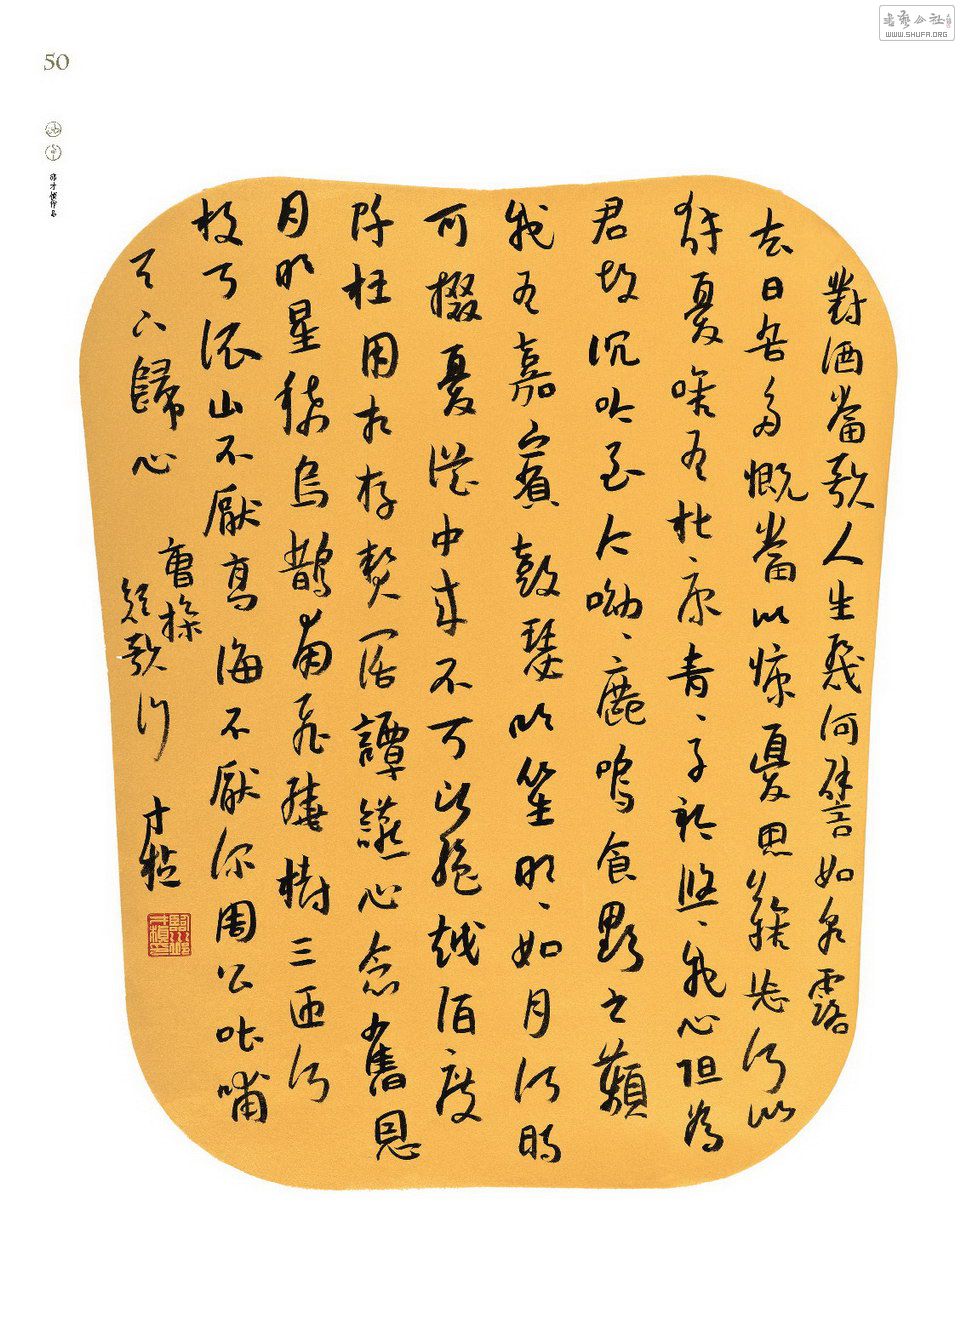 50
對酒當歌人生幾何譬如朝露
去日苦多慨當以慷憂思難忘何以
解憂唯有杜康青〻子衿悠〻我心但為
君故沉吟至今呦〻鹿鳴食野之蘋
我有嘉賓鼓瑟吹笙明〻如月何時
可掇憂從中來不可以絕越陌度
阡枉用相存契闊譚讌心念舊恩
月明星稀烏鵲南飛繞樹三匝何
枝可依山不厭高海不厭深周公吐哺
天下歸心
曹操
短歌行
才楨
书艺公社
WWW.SHUFA.ORG